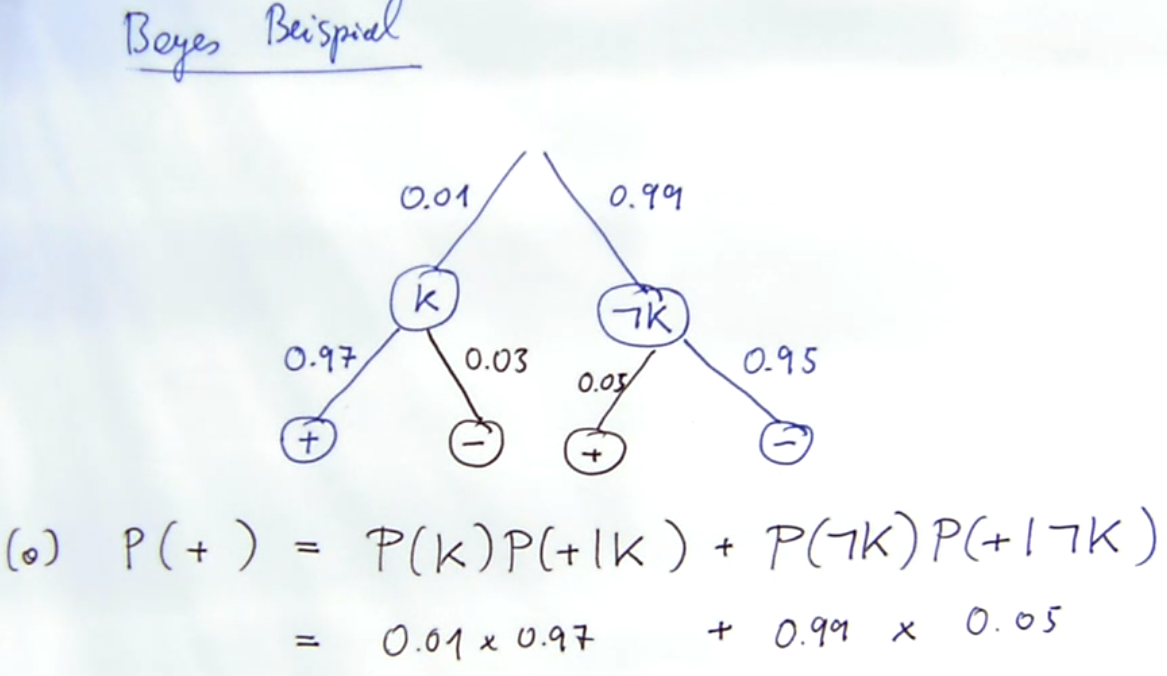 Bayes Beispiel
0.01 0.99
K ¬K
0.97 0.03 0.05 0.95
+ − + −
(o) P(+) = P(K)P(+|K) + P(¬K)P(+|¬K)
= 0.01 x 0.97 + 0.99 x 0.05